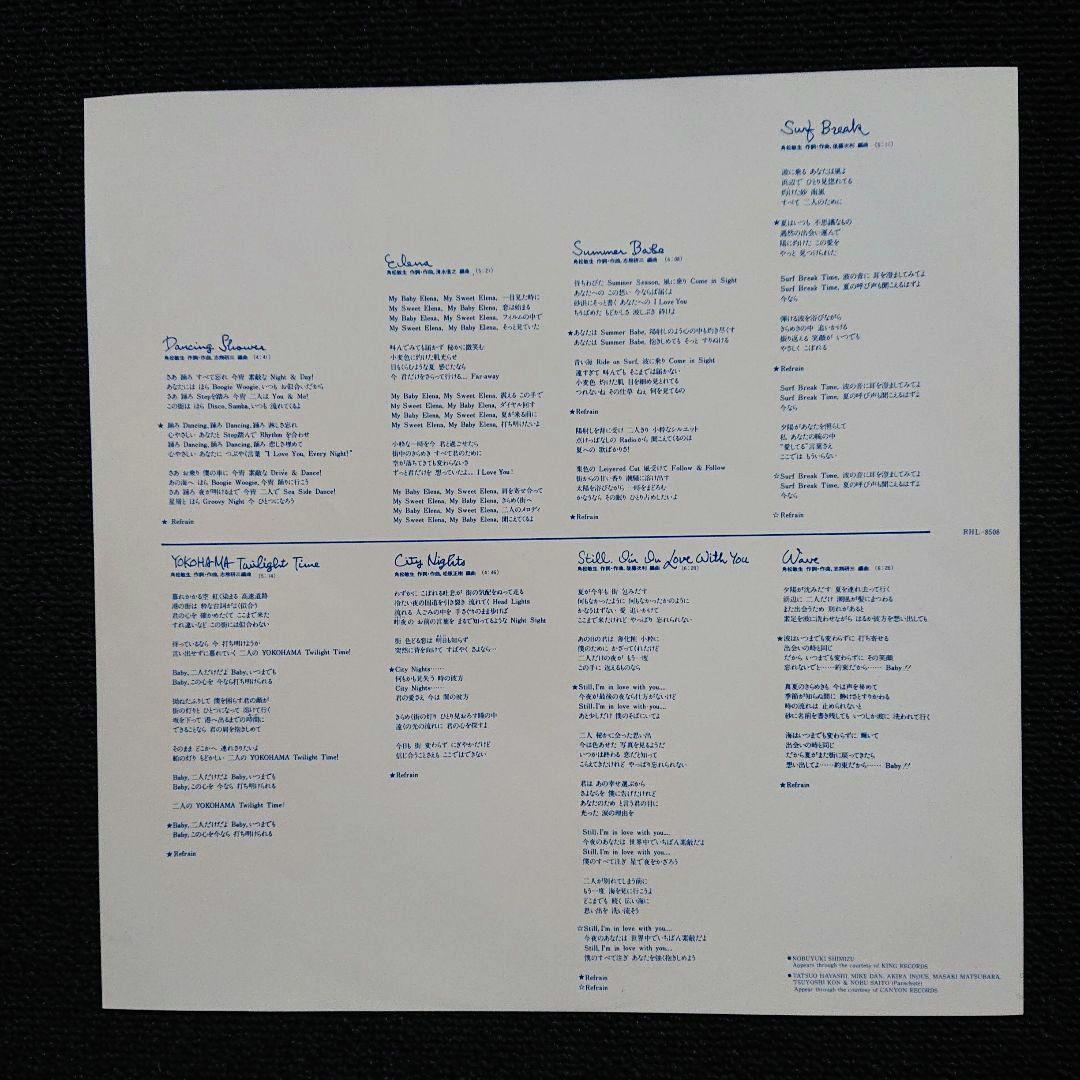 Dancing Shower
角松敏生 作詞・作曲, 志熊研三 編曲 (4:41)
さあ 踊ろ すべて忘れ 今宵 素敵な Night & Day!
あなたには ほら Boogie Woogie, いつも お似合いだから
さあ 踊ろ Stepを踏み 今宵 二人は You & Me!
この街は ほら Disco, Samba, いつも 流れてるよ
★踊ろ Dancing, 踊ろ Dancing, 踊ろ 淋しさ忘れ
心やさしい あなたと Step踏んで Rhythm を合わせ
踊ろ Dancing, 踊ろ Dancing, 踊ろ 悲しさ埋めて
心やさしい あなたに つぶやく言葉 "I Love You, Every Night!"
さあ お乗り 僕の車に 今宵 素敵な Drive & Dance!
あの海へ ほら Boogie Woogie, 今宵 踊りに行こう
さあ 踊ろ 夜が明けるまで 今宵 二人で Sea Side Dance!
星屑と ほら Groovy Night 今 ひとつになろう
★ Refrain
Elena
角松敏生 作詞・作曲, 清水信之 編曲 (5:21)
My Baby Elena, My Sweet Elena, 一目見た時に
My Sweet Elena, My Baby Elena, 恋は始まる
My Baby Elena, My Sweet Elena, フィルムの中で
My Sweet Elena, My Baby Elena, そっと見ていた
叫んでみても届かず 秘かに微笑む
小麦色に灼けた肌光らせ
目もくらむような夏 感じたなら
今 君だけをさらって行ける… Far-away
My Baby Elena, My Sweet Elena, 震える この手で
My Sweet Elena, My Baby Elena, ダイヤル回す
My Baby Elena, My Sweet Elena, 夏が来る前に
My Sweet Elena, My Baby Elena, 打ち明けたいよ
小粋な一時を今 君と過ごせたら
街中のきらめき すべて君のために
空が落ちてきても変わらないさ
ずっと君だけを 想っていたよ… I Love You!
My Baby Elena, My Sweet Elena, 肩を寄せ合って
My Sweet Elena, My Baby Elena, きらめく街へ
My Baby Elena, My Sweet Elena, 二人のメロディ
My Sweet Elena, My Baby Elena, 聞こえてくるよ
Summer Babe
角松敏生 作詞・作曲, 志熊研三 編曲 (4:08)
待ちわびた Summer Season, 風に乗り Come in Sight
あなたへの この想い 今ならば届くよ
砂浜にそっと書く あなたへの I Love You
ちりばめた もどかしさ 波しぶき 砕けよ
★あなたは Summer Babe, 陽射しのよう心の中も灼き尽くす
あなたは Summer Babe, 抱きしめても そっと すりぬける
青い海 Ride on Surf, 波に乗り Come in Sight
遠すぎて 叫んでも そこまでは届かない
小麦色 灼けた肌 目を細め見とれてる
つれないね その仕草 ねぇ 何を見てるの
★Refrain
陽射しを背に受け 二人きり 小粋なシルエット
点けっぱなしの Radioから 聞こえてくるのは
夏への 歌ばかりさ!
栗色の Leiyered Cut 風受けて Follow & Follow
街からの甘い香り 潮騒に溶け出す
太陽を浴びながら 一時をまどろむ
かなうなら その眠り ひとり占めしたいよ
★Refrain
Surf Break
角松敏生 作詞・作曲, 後藤次利 編曲 (5:11)
波に乗る あなたは風よ
浜辺で ひとり見惚れてる
灼けた砂 南風
すべて 二人のために
★夏はいつも 不思議なもの
偶然の出会い運んで
陽に灼けた この愛を
やっと 見つけられた
Surf Break Time, 波の音に 耳を澄ましてみてよ
Surf Break Time, 夏の呼び声も聞こえるはずよ
今なら
弾ける波を浴びながら
きらめきの中 追いかける
振り返える 笑顔が いつでも
やさしく こぼれる
★Refrain
Surf Break Time, 波の音に耳を澄ましてみてよ
Surf Break Time, 夏の呼び声も聞こえるはずよ
今なら
夕陽があなたを照らして
私, あなたの腕の中
"愛してる"言葉さえ
ここでは もういらない
☆Surf Break Time, 波の音に 耳を澄ましてみてよ
Surf Break Time, 夏の呼び声も聞こえるはずよ
今なら
☆Refrain
RHL-8508
YOKOHAMA Twilight Time
角松敏生 作詞・作曲, 志熊研三 編曲 (5:14)
暮れかかる空 紅く染まる 高速道路
港の街は 粋な台詞がよく似合う
君の心を 確かめたくて ここまで来た
すれ違いなど この街には似合わない
待っているなら 今 打ち明けようか
言い出せずに暮れていく 二人の YOKOHAMA Twilight Time!
Baby, 二人だけだよ Baby, いつまでも
Baby, この心を 今なら打ち明けられる
拗ねたふりして 僕を困らす君の顔が
街の灯りと ひとつになって 溶けて行く
坂を下って 港へ出るまでの時間に
できることなら 君の肩を抱きしめて
そのまま どこかへ 連れ去りたいよ
船の灯り もどかしい 二人の YOKOHAMA Twilight Time!
Baby, 二人だけだよ Baby, いつまでも
Baby, この心を 今なら 打ち明けられる
二人の YOKOHAMA Twilight Time!
★Baby, 二人だけだよ Baby, いつまでも
Baby, この心を今なら 打ち明けられる
★Refrain
City Nights
角松敏生 作詞・作曲, 松原正樹 編曲 (4:46)
わずかに こぼれる吐息が 街の気配をぬって走る
冷たい夜の国道を引き裂き 流れてく Head Lights
流れる 人ごみの中を 手さぐりのまま歩けば
昨夜の お前の言葉を まるで知ってるような Night Sight
街 色どる恋は 明日も知らず
突然に背を向けて すばやく さよなら…
★City Nights……
何もかも見失う 時の彼方
City Nights……
君の愛さえ 今は 闇の彼方
きらめく街の灯り ひとり見おろす瞳の中
遠くの光の流れに 君の心を探すよ
今日も 街 変わらず にぎやかだけど
信じ合うことさえも ここではできない
★Refrain
Still, I'm In Love With You
角松敏生 作詞・作曲, 後藤次利 編曲 (6:20)
夏が今年も 街 包みだす
何もなかったように 何もなかったかのように
かなうはずない 愛 追いかけて
ここまで来たけれど やっぱり 忘れられない
あの日の君は 薄化粧 小粋に
僕のために かざってくれたけど
二人だけの夜が もう一度
この手に 返えるものなら
★Still, I'm in love with you....
今夜が最後の夜なら仕方がないけど
Still, I'm in love with you....
あと少しだけ 僕のそばにいてよ
二人 秘かに会った思い出
今は色あせた 写真を見るようだ
いつかは終わる 恋だと知って
こらえてきたけれど やっぱり忘れられない
君は あの幸せ選ぶから
さよならを 僕に告げたけれど
あなたのため と言う君の目に
光った 涙の理由を
Still, I'm in love with you....
今夜のあなたは 世界中でいちばん素敵だよ
Still, I'm in love with you....
僕のすべて注ぎ 星で夜をかざろう
二人が別れてしまう前に
もう一度 海を見に行こうよ
どこまでも 続く 広い海に
思い出を 洗い流そう
☆Still, I'm in love with you....
今夜のあなたは 世界中でいちばん素敵だよ
Still, I'm in love with you....
僕のすべて注ぎ あなたを強く抱きしめよう
★Refrain
☆Refrain
Wave
角松敏生 作詞・作曲, 志熊研三 編曲 (6:26)
夕陽が沈みだす 夏を連れ去って行く
浜辺に 二人だけ 潮風が髪にまつわる
また出会うため 別れがあると
素足を波に洗わせながら はるか彼方を想い出しても
★波はいつでも変わらずに 打ち寄せる
出会いの時と同じ
だから いつまでも変わらずに その笑顔
忘れないでと……約束だから…… Baby!!
真夏のきらめきも 今は声を秘めて
季節が知らぬ間に 静けさとすりかわる
時の流れは 止められないと
砂に名前を書き残しても いつしか波に 洗われて行く
海はいつまでも変わらずに 輝いて
出会いの時と同じ
だから夏がまた街に戻ってきたら
想い出してよ……約束だから…… Baby!!
★Refrain
●NOBUYUKI SHIMIZU
Appears through the courtesy of KING RECORDS
●TATSUO HAYASHI, MIKE DAN, AKIRA INOUE, MASAKI MATSUBARA,
TSUYOSHI KON & NOBU SAITO (Parachute)
Appear through the courtesy of CANYON RECORDS